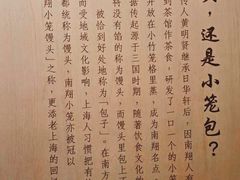 ，还是小笼包？
传人黄明贤继承日华轩后，因南翔人有
到茶馆作茶食，研发了一口一个的小笼
并放在小竹笼格里蒸，成为南翔名点
据传起源于三国时期，随着饮食文化
将没有馅的称为馒头，而馒头里包上
被恰到好处地称为「包子」。在南方
而受地域文化影响，上海人习惯把有
都统称为馒头，南翔小笼亦被冠以
翔小笼馒头」之称，更添老上海的回